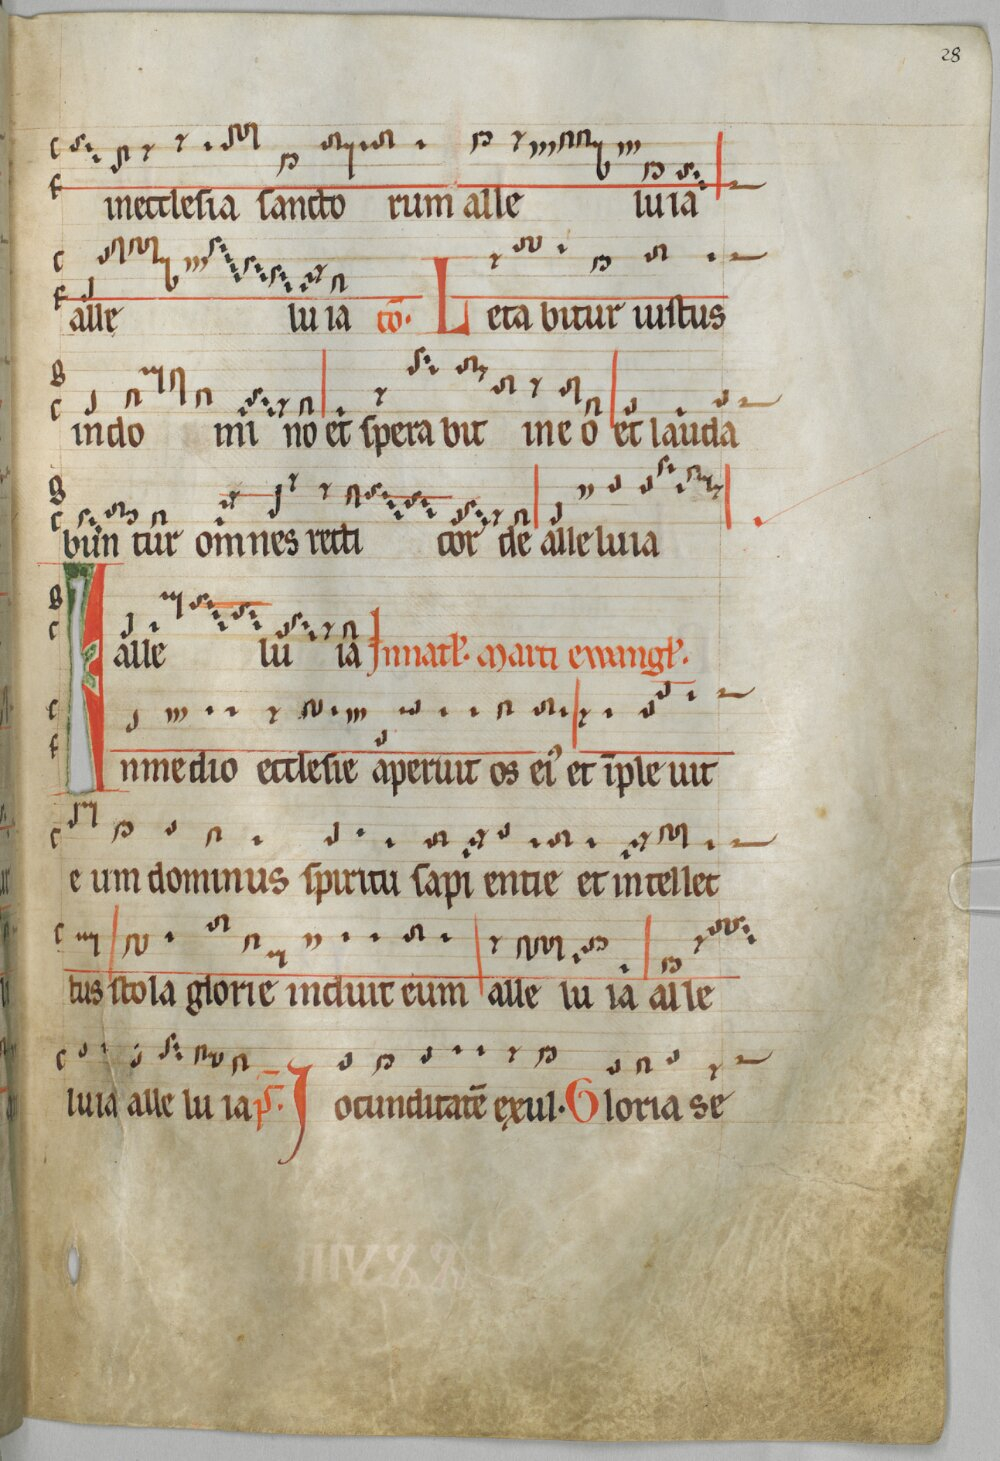 28
in ecclesia sancto rum alle lu ia
alle lu ia cō. Leta bitur iustus
in do mi no et spera bit in e o et lauda
bun tur omnes recti cor de alle luia
alle lu ia In nat͛. Marci ewangł.
In medio ecclesie aperuit os eiꝰ et īple uit
e um dominus spiritu sapi entie et intellec
tus stola glorie induit eum alle lu ia alle
luia alle lu ia ps̄. Iocunditatē exul. Gloria se